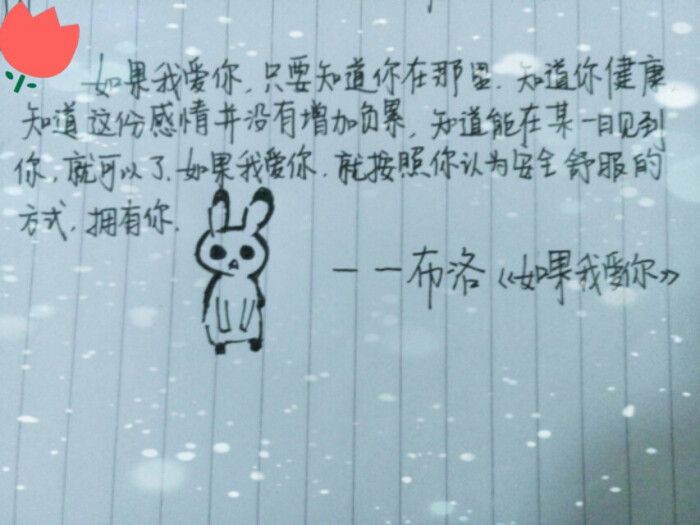 如果我爱你，只要知道你在那里，知道你健康，
知道这份感情并没有增加负累，知道能在某一日见到
你，就可以了。如果我爱你，就按照你认为安全舒服的
方式，拥有你。
——布洛《如果我爱你》